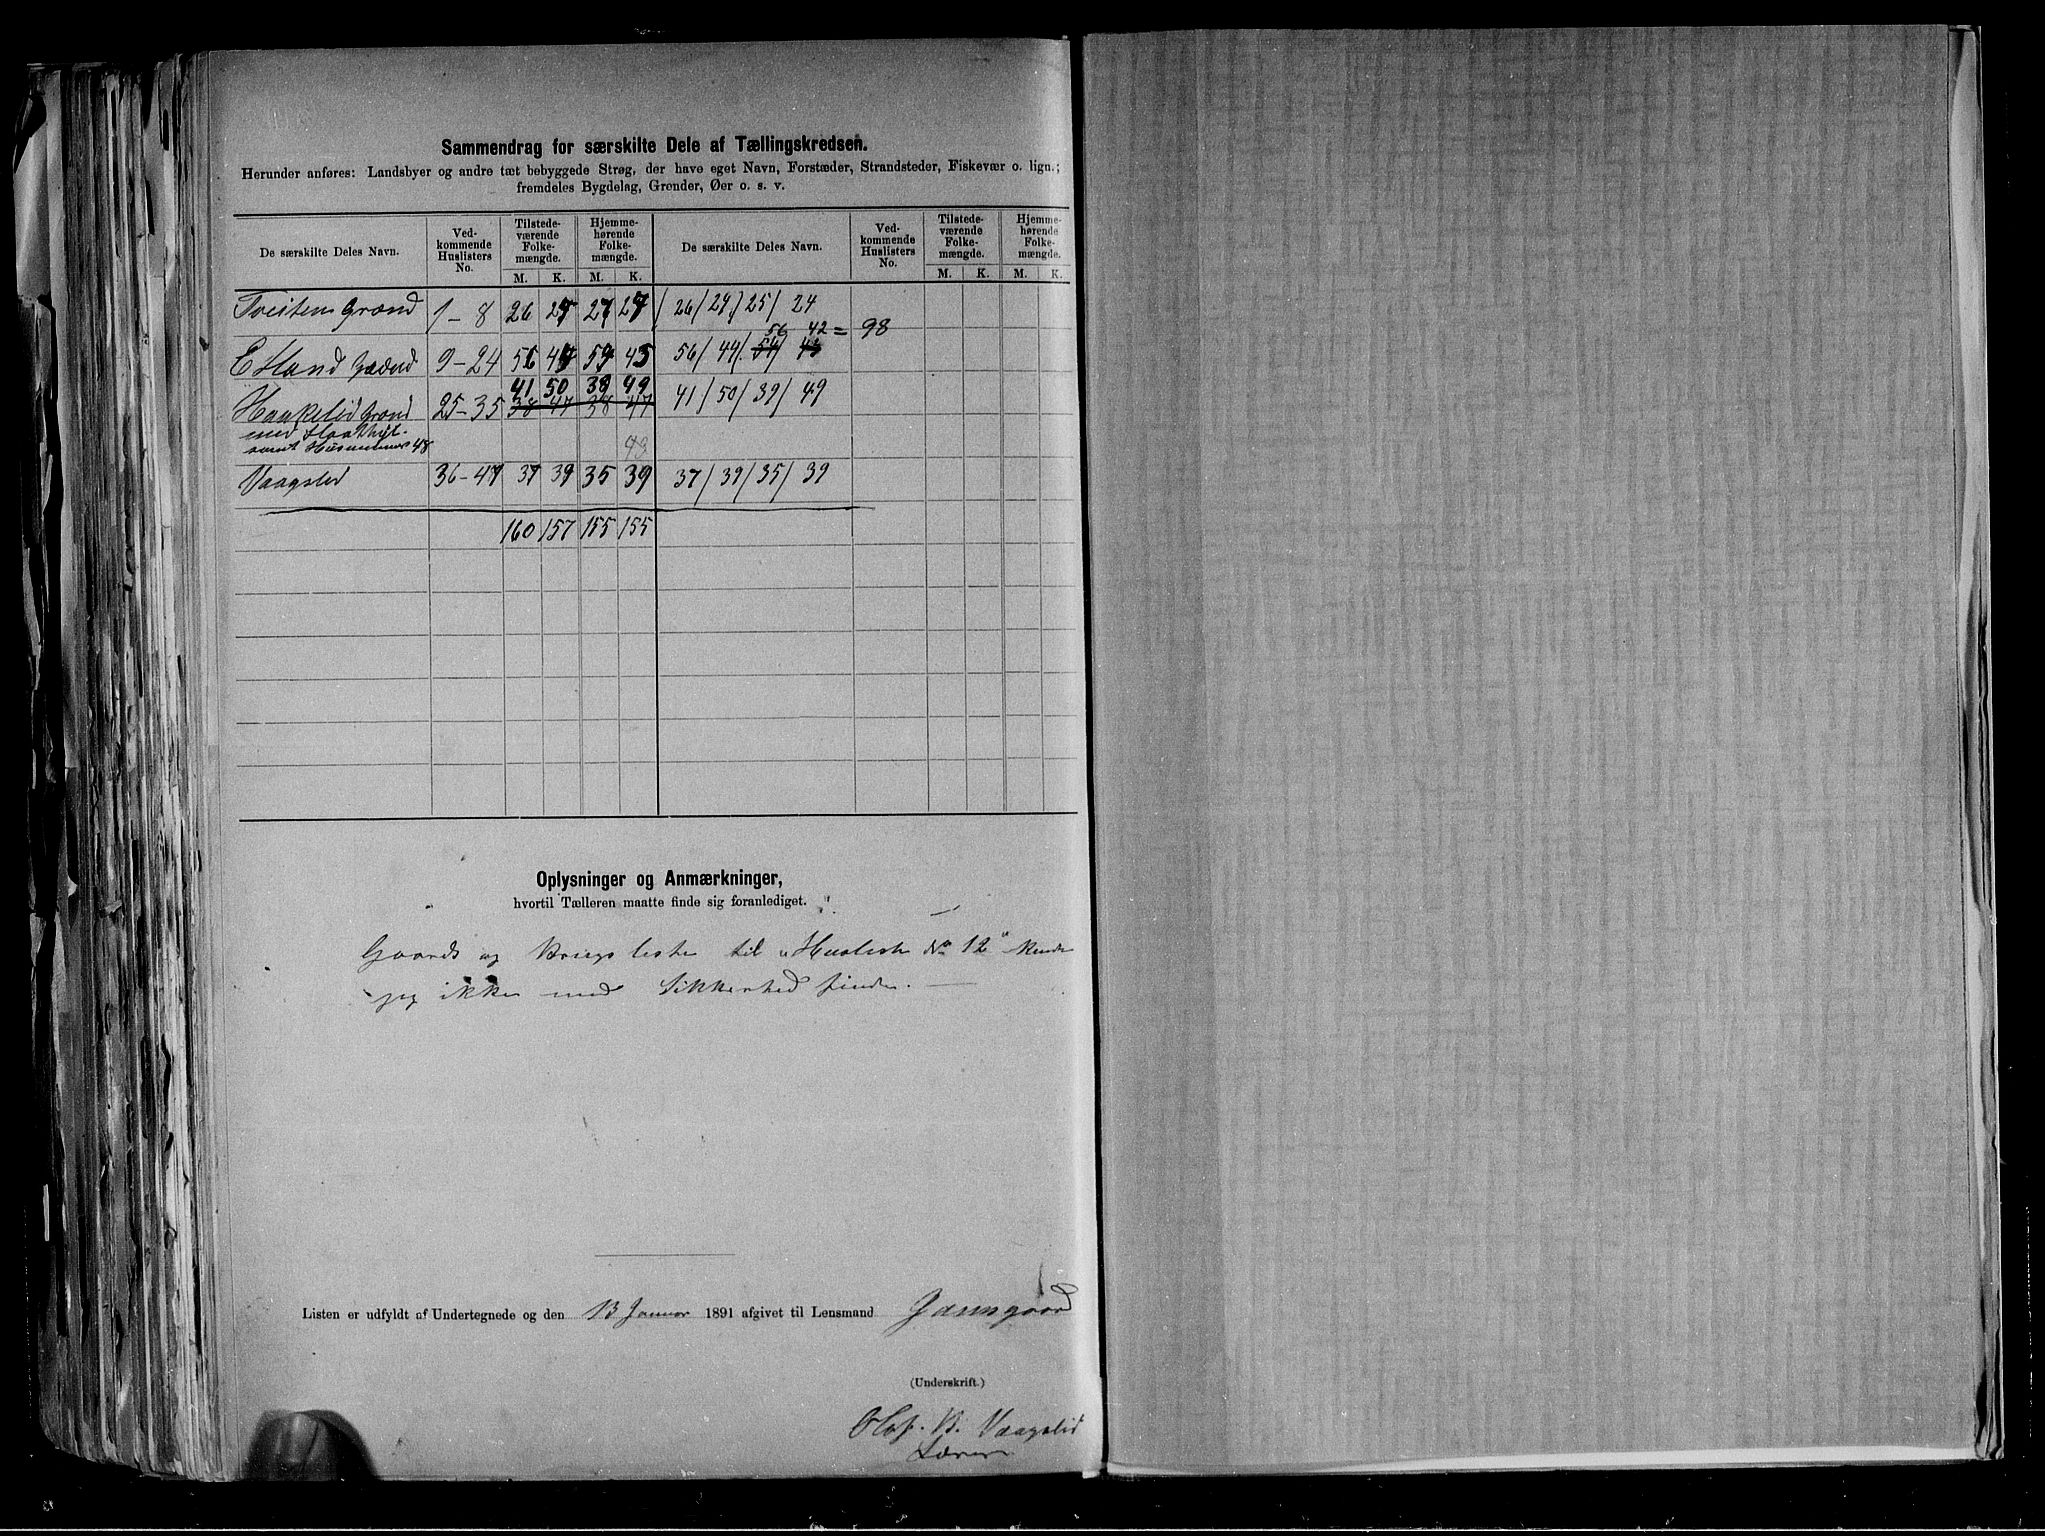 Sammendrag for særskilte Dele af Tællingskredsen.
Herunder anføres: Landsbyer og andre tæt bebyggede Strøg, der have eget Navn, Forstæder, Strandsteder, Fiskevær o. lign.;
fremdeles Bygdelag, Grender, Øer o. s. v.
De særskilte Deles Navn. Ved-kommende Huslisters No. Tilstede-værende Folke-mængde. Hjemme-hørende Folke-mængde. De særskilte Deles Navn. Ved-kommende Huslisters No. Tilstede-værende Folke-mængde. Hjemme-hørende Folke-mængde.
M. K. M. K. M. K. M. K.
Tveiten Grænd 1-8 26 27 / 26 / 27 / 25 / 24
56 42 = 98
Grænd 9-24 56 / 44 /
41 50 39 49
Haukelid Grænd 25-35 38 47 38 47 41 / 50 / 39 / 49
med
samt Husnummer 48 48
Vaagsled 36-47 37 39 35 39 37 / 39 / 35 / 39
160 157 155 155
Oplysninger og Anmærkninger,
hvortil Tælleren maatte finde sig foranlediget.
Gaards og Brugsliste til "Husliste No 12" kunde
jeg ikke med Sikkerhed finde. —
Listen er udfyldt af Undertegnede og den 13 Januar 1891 afgivet til Lensmand
(Underskrift.)
Olaf. B. Vaagslid
Lærer